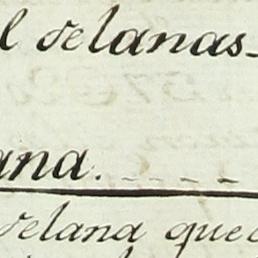 l de lanas
ana.
de lana que